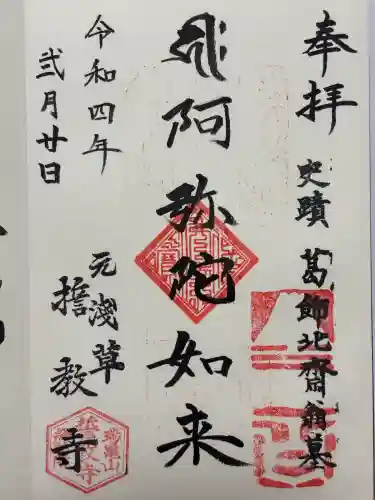 奉拝
史蹟 葛飾北齋翁墓
阿弥陀如来
令和四年
弐月廿日
元浅草
誓教寺